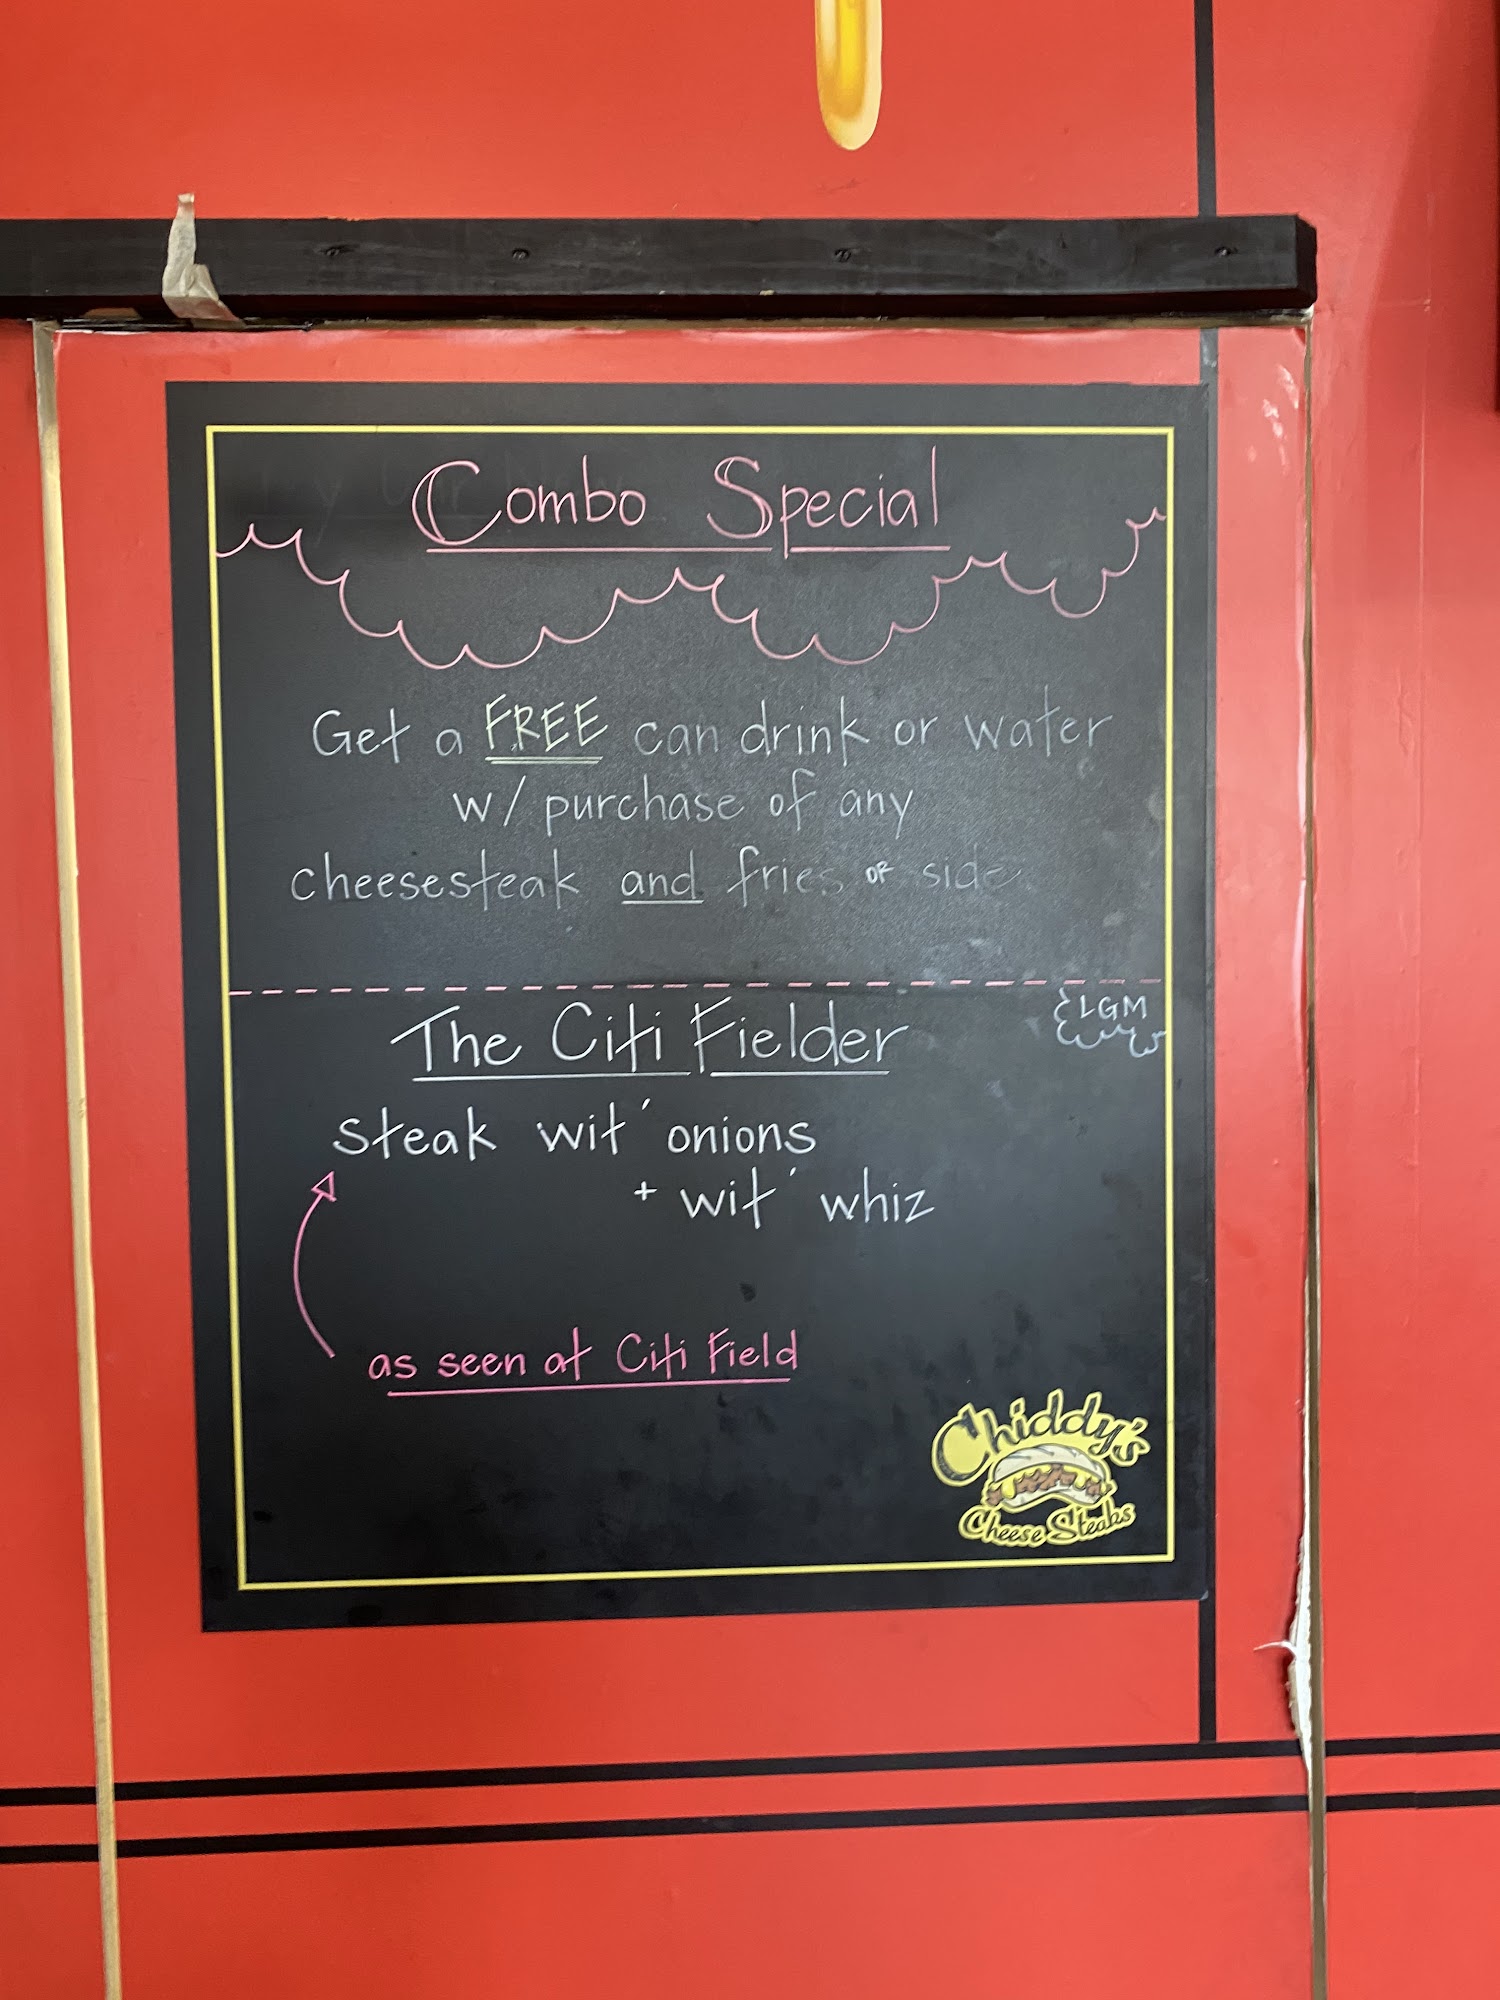 Combo Special
Get a FREE can drink or water
w/ purchase of any
cheesesteak and fries or side
LGM
The Citi Fielder
steak wit' onions
+ wit' whiz
as seen at Citi Field
Chiddy's
Cheese Steaks